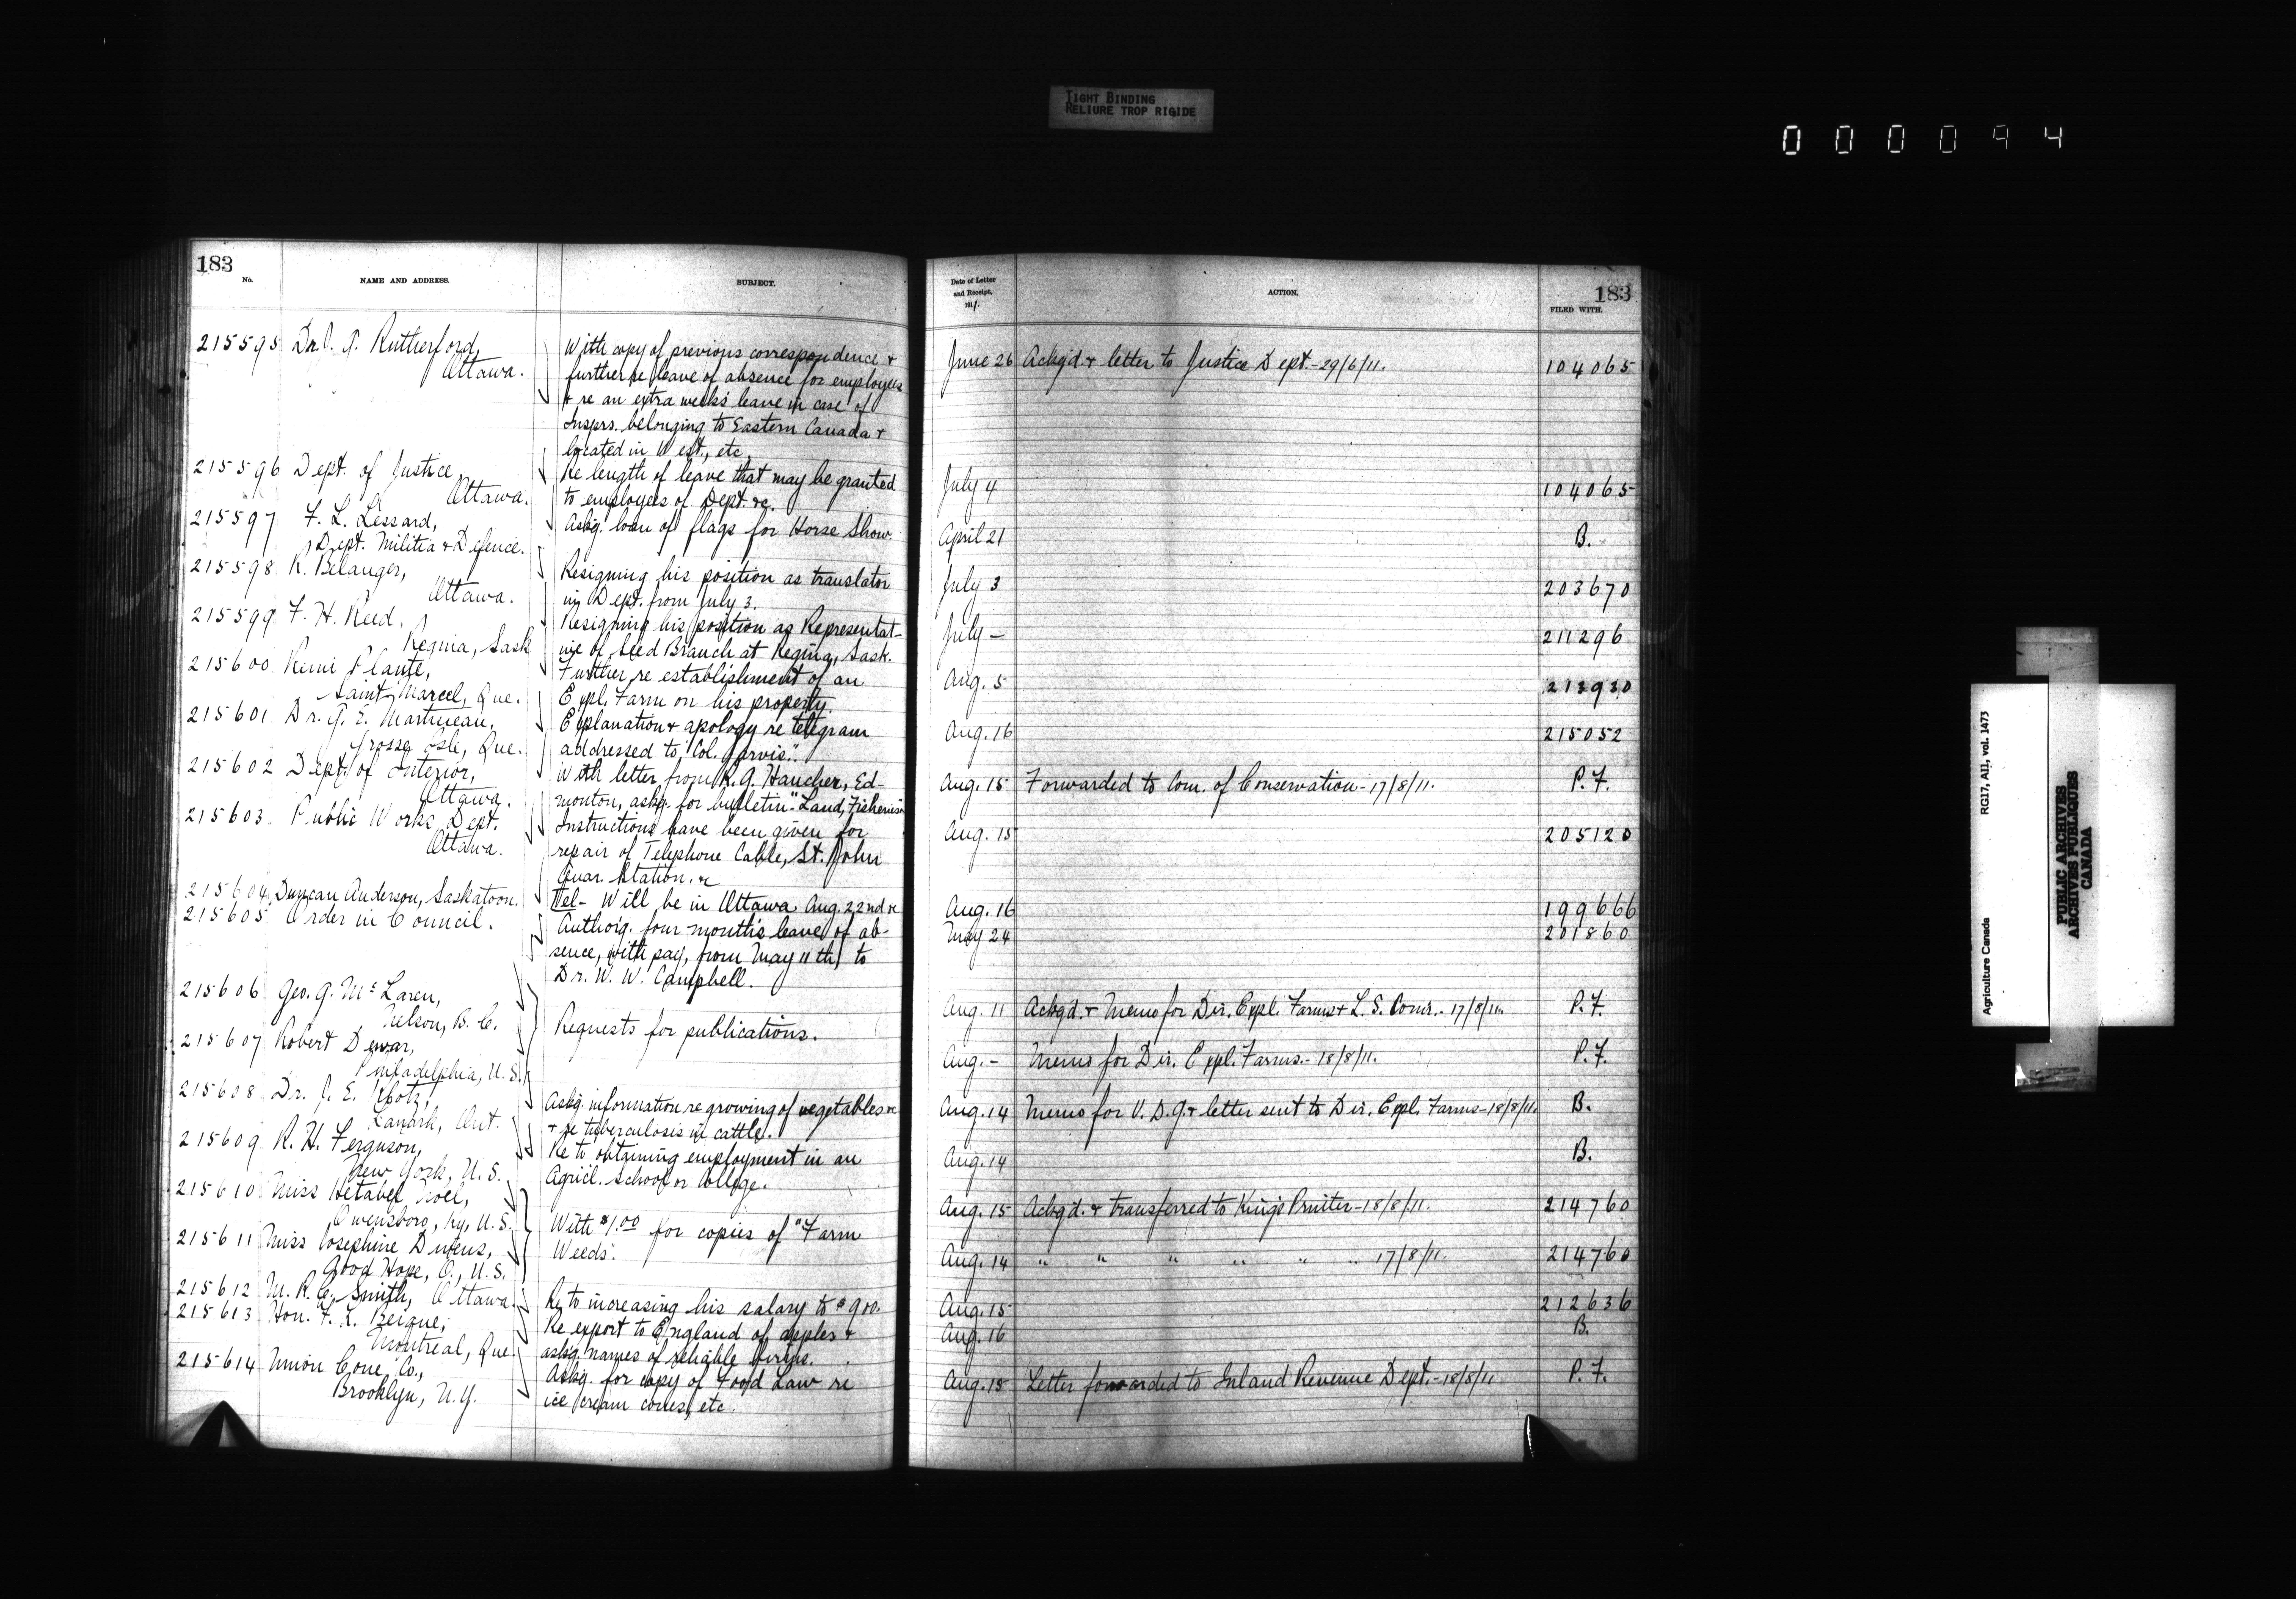 TIGHT BINDING
RELIURE TROP RIGIDE
000094
183
No.
NAME AND ADDRESS.
SUBJECT.
215595 Dr. J. G. Rutherford,
Ottawa.
With copy of previous correspondence &
further re leave of absence for employees
& re an extra weeks leave in case of
Insprs. belonging to Eastern Canada &
located in West, etc.
215596 Dept. of Justice,
Ottawa.
Re length of leave that may be granted
to employees of Dept. &c.
215597 F. L. Lessard,
Dept. Militia & Defence.
Askg. loan of flags for Horse Show.
215598 R. Belanger,
Ottawa.
Resigning his position as translator
in Dept. from July 3.
215599 F. H. Reed,
Regina, Sask
Resigning his position as Representat-
ive of Seed Branch at Regina, Sask.
215600 Remi Plante,
Saint Marcel, Que.
Further re establishment of an
Expl. Farm on his property.
215601 Dr. G. E. Martineau,
Grosse Isle, Que.
Explanation & apology re telegram
addressed to "Col. Jarvis".
215602 Dept. of Interior,
Ottawa.
With letter from R. G. Haucher, Ed-
monton, askg. for bulletin "Land, Fisheries
215603 Public Works Dept.
Ottawa.
Instructions have been given for
repair of Telephone Cable, St. John
Quar. Station. &c
215604 Duncan Anderson, Saskatoon.
Tel- Will be in Ottawa Aug. 22nd &c
215605 Order in Council.
Authorg. four month's leave of ab-
sence, with pay, from May 11th, to
Dr. W. W. Campbell.
215606 Geo. G. McLaren,
Nelson, B.C.
215607 Robert Dewar,
Philadelphia, U.S.
Requests for publications.
215608 Dr. J. E. Klotz,
Lanark, Ont.
Askg. information re growing of vegetables &c
& re tuberculosis in cattle.
215609 R. H. Ferguson,
New York, U.S.
Re to obtaining employment in an
Agricl. School or College.
215610 Miss Hetabel
Owensboro, Ky, U.S.
215611 Miss Josephine
Good Hope, O., U.S.
With $1.00 for copies of "Farm
Weeds".
215612 M. R. C. Smith, Ottawa.
Re to increasing his salary to $900.
215613 Hon. F. L. Beique,
Montreal, Que.
Re export to England of apples &
askg. names of reliable firms.
215614 Union Cone Co.,
Brooklyn, N.Y.
Askg. for copy of Food Law re
ice cream cones, etc.
183
Date of Letter
and Receipt,
1911.
ACTION.
FILED WITH.
June 26 Ackg'd. & letter to Justice Dept.-29/6/11. 104065
July 4 104065
April 21 B.
July 3 203670
July - 211296
Aug. 5 213930
Aug. 16 215052
Aug. 15 Forwarded to Com. of Conservation-17/8/11. P.F.
Aug. 15 205120
Aug. 16 199666
May 24 201860
Aug. 11 Ackg'd. & Memo for Dir. Expl. Farms & L. S. Comr.-17/8/11. P.F.
Aug. - Memo for Dir. Expl. Farms.-18/8/11. P.F.
Aug. 14 Memo for V. D. G. & letter sent to Dir. Expl. Farms-18/8/11. B.
Aug. 14 B.
Aug. 15 Ackg'd. & transferred to King's Printer-18/8/11. 214760
Aug. 14 " " " " " " 17/8/11. 214760
Aug. 15 212636
Aug. 16 B.
Aug. 15 Letter forwarded to Inland Revenue Dept.-18/8/11 P.F.
Agriculture Canada
RG17, AII, vol. 1473
PUBLIC ARCHIVES
ARCHIVES PUBLIQUES
CANADA